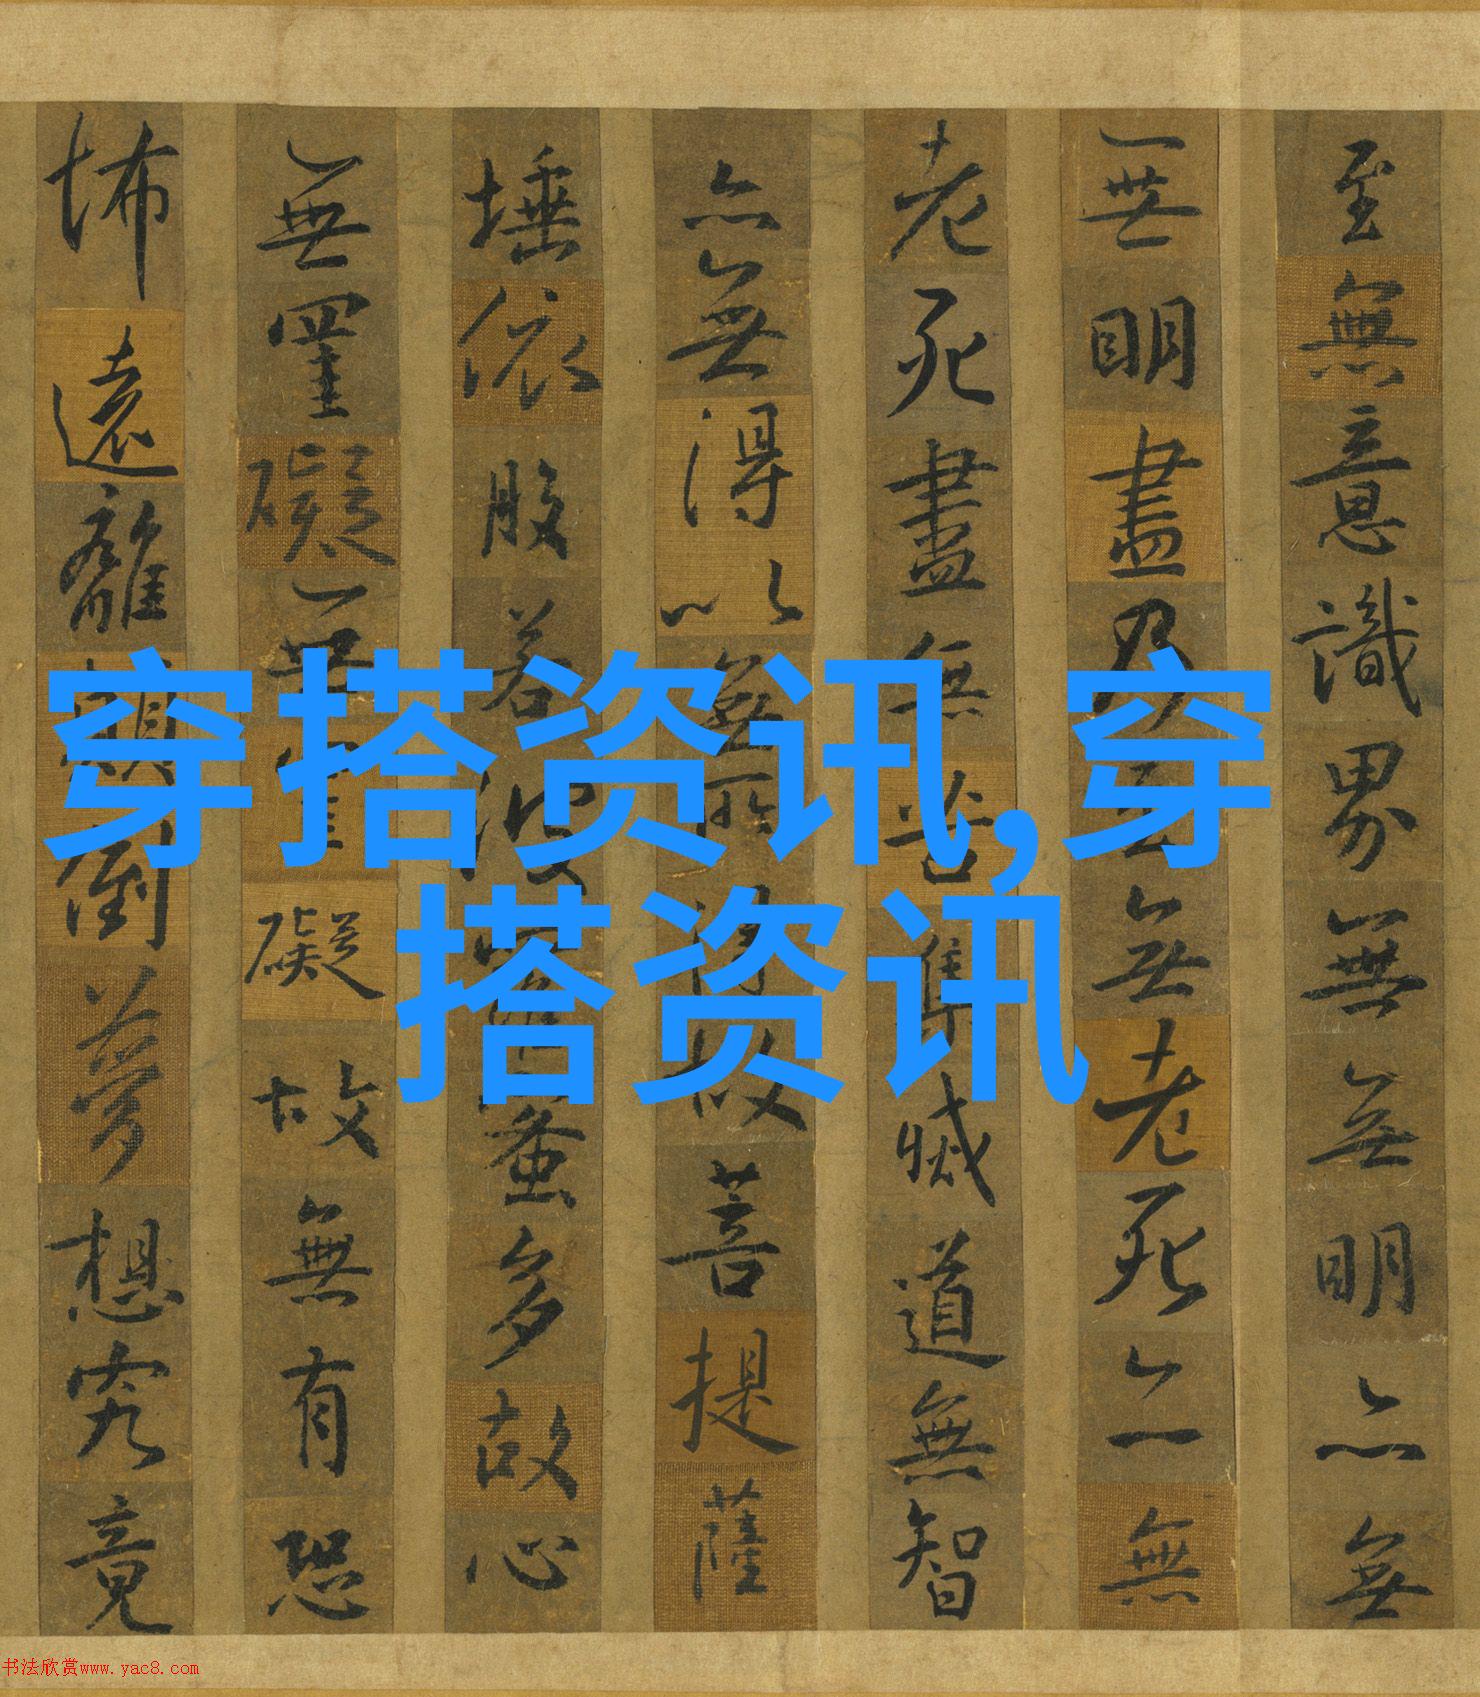 穿搭资讯,穿
搭资讯
至無意識界無無明亦無
無明盡乃至無老死亦無
老死盡無苦集滅道無智
亦無得以無所得故菩提薩
埵依般若波羅蜜多故心
無罣礙無罣礙故無有恐
怖遠離顛倒夢想究竟
书法欣赏www.yac8.com